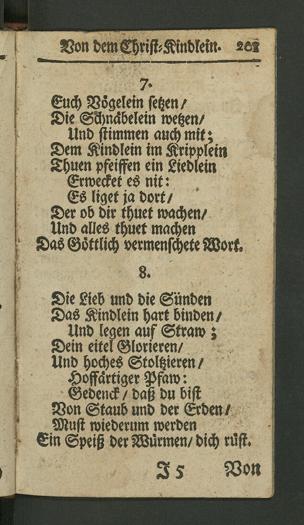 Von dem Christ-Kindlein. 201
7.
Euch Vögelein setzen/
Die Schnäbelein wetzen/
Und stimmen auch mit;
Dem Kindlein im Kripplein
Thuen pfeiffen ein Liedlein
Erwecket es nit:
Es liget ja dort/
Der ob dir thuet wachen/
Und alles thuet machen
Das Göttlich vermenschete Wort.
8.
Die Lieb und die Sünden
Das Kindlein hart binden/
Und legen auf Straw;
Dein eitel Glorieren/
Und hoches Stoltzieren/
Hoffärtiger Pfaw:
Gedenck/ daß du bist
Von Staub und der Erden/
Must wiederum werden
Ein Speiß der Würmen/ dich rüst.
I 5 Von